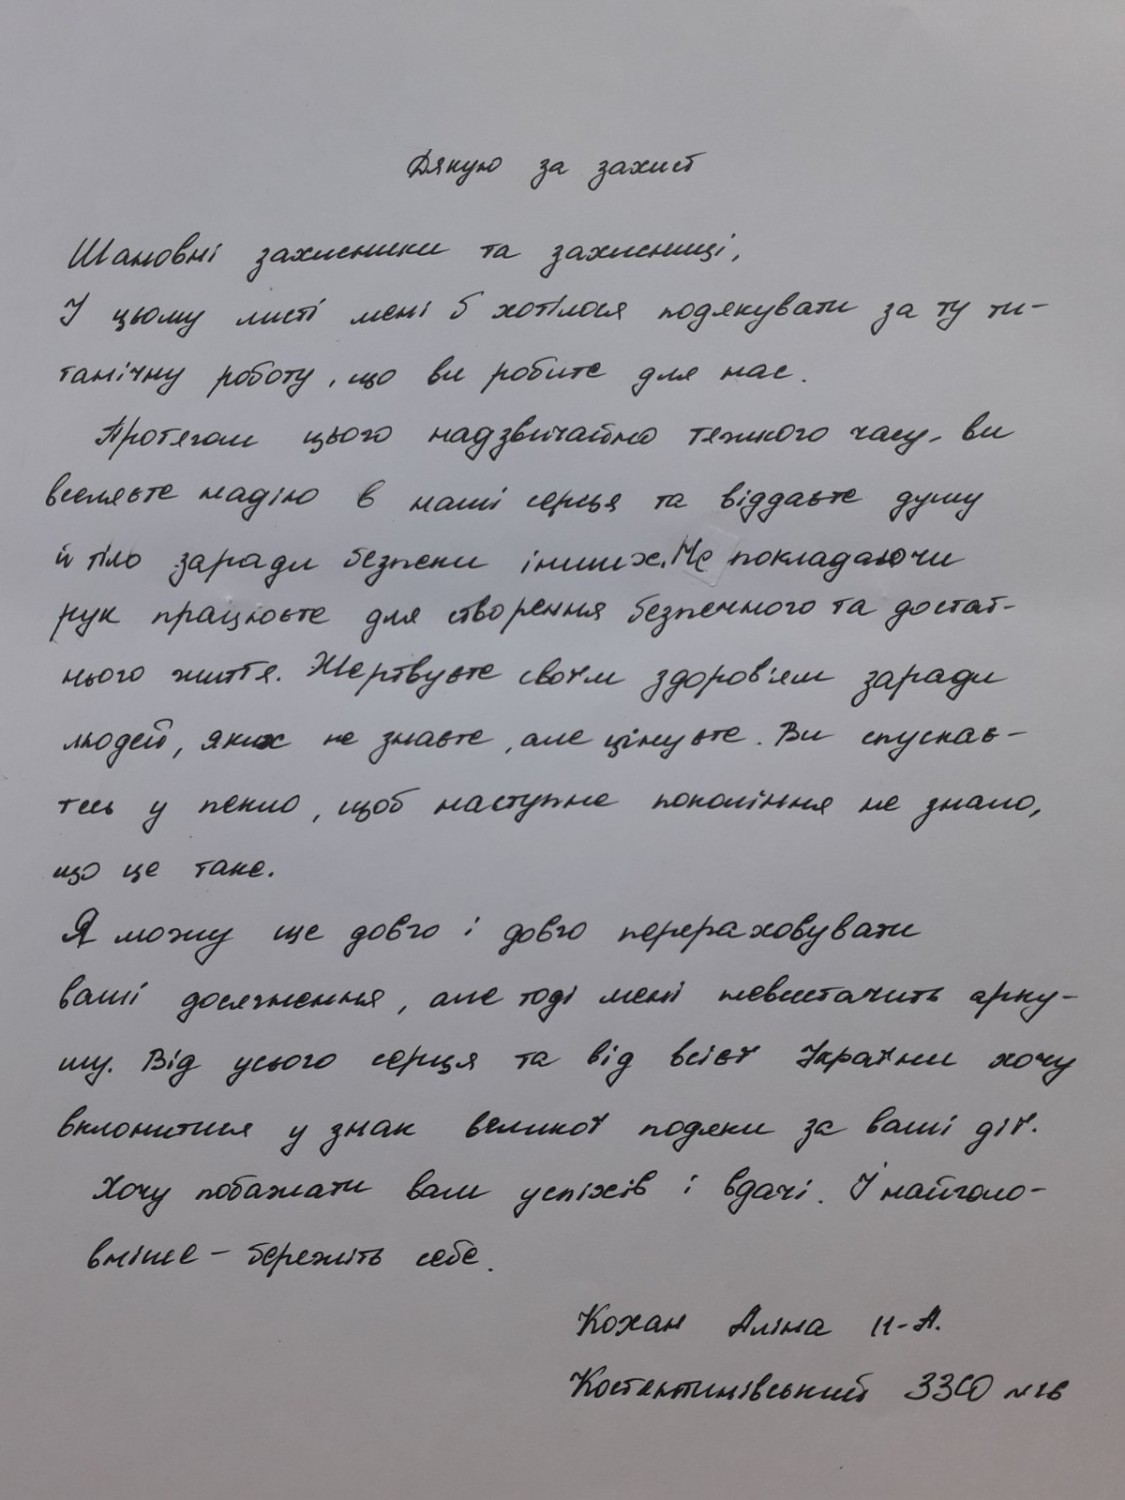 Дякую за захист
Шановні захисники та захисниці,
У цьому листі мені б хотілося подякувати за ту ти-
танічну роботу, що ви робите для нас.
Протягом цього надзвичайно тяжкого часу, ви
вселяєте надію в наші серця та віддаєте душу
й тіло заради безпеки інших. Не покладаючи
рук працюєте для створення безпечного та достат-
нього життя. Жертвуєте своїм здоров'ям заради
людей, яких не знаєте, але цінуєте. Ви спускає-
тесь у пекло, щоб наступне покоління не знало,
що це таке.
Я можу ще довго і довго перераховувати
ваші досягнення, але тоді мені невистачить арку-
шу. Від усього серця та від всієї України хочу
вклонитися у знак великої подяки за ваші дії.
Хочу побажати вам успіхів і вдачі. І найголо-
вніше – бережіть себе.
Кохан Аліна 11-А.
Костянтинівський ЗЗСО №16